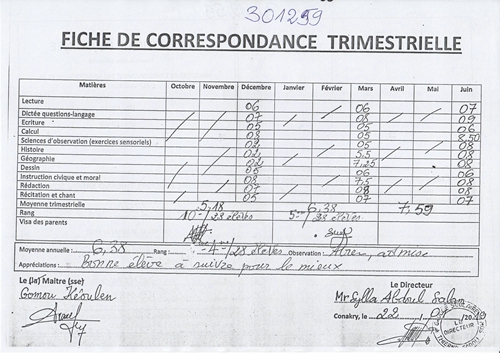 301259
FICHE DE CORRESPONDANCE TRIMESTRIELLE
Matières Octobre Novembre Décembre Janvier Février Mars Avril Mai Juin
Lecture 06 06 07
Dictée questions-langage 07 08 09
Ecriture 05 05 06
Calcul 08 06 8,50
Sciences d'observation (exercices sensoriels) 05 08
Histoire 5,5 08
Géographie 02 7,25 08
Dessin 05 06 06
Instruction civique et moral 08 7,5 08
Rédaction 07 08 07
Récitation et chant 05 05 07
Moyenne trimestrielle 5,18 6,38 7,59
Rang 10 /28 élèves 5 /28 élèves
Visa des parents
Moyenne annuelle : 6,38 Rang : 4 /28 élèves Observation : admise
Appréciations : Bonne élève à suivre pour le mieux
Le (la) Maitre (sse) Le Directeur
Mr Sylla Abdoul Salam
Conakry, le 22 07 /2019
LE DIRECTEUR